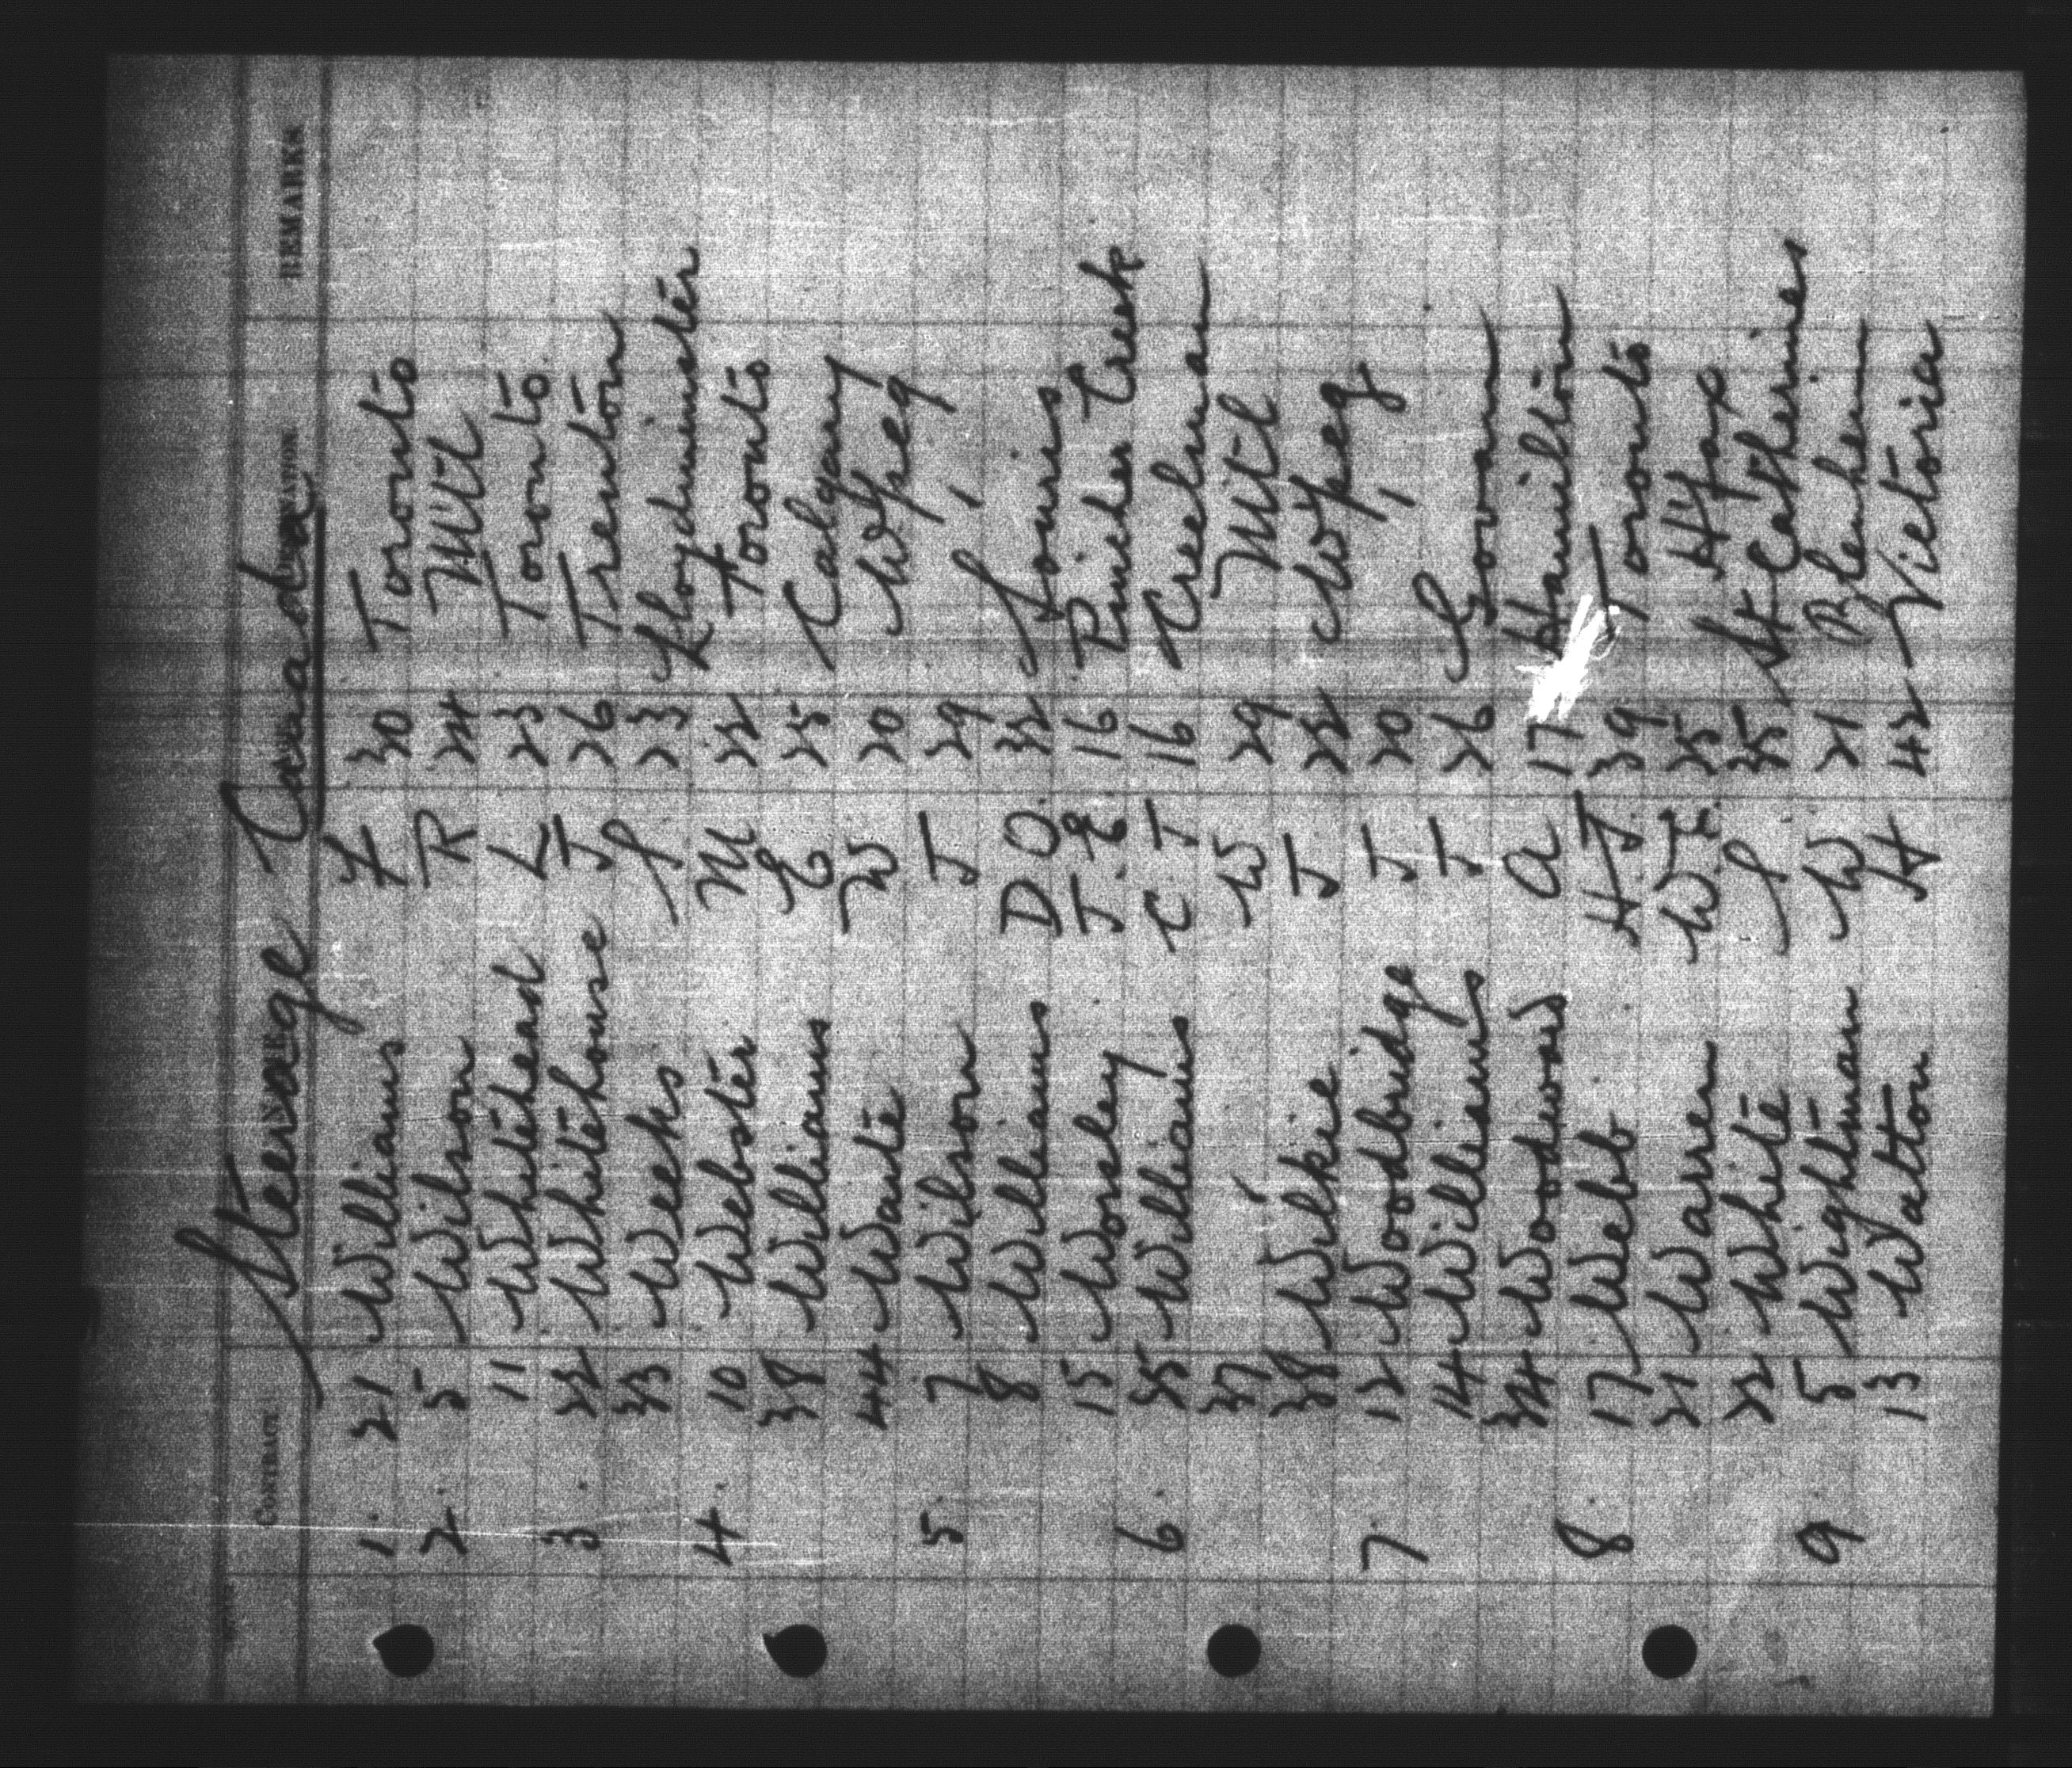 Steerage Canada
CONTRACT NAME REMARKS
1. 21 Williams F 30 Toronto
2. 5 Wilson R 24 Mtl
11 Whitehead L 23 Toronto
3. 22 Whitehouse J 26 Trenton
33 Weeks S 23 Lloydminster
4. 10 Webster M 22 Toronto
38 Williams E 25 Calgary
44 Waite W 20 W'peg
5. 7 Wilson J 29 "
8 Williams D O. 32 Souris
15 Worsley J. E 16 Pincher Creek
6. 25 Williams C J 16 Creelman
37 " W 29 Mtl
38 Wilkie J 22 W'peg
7. 12 Woodbridge J 20 "
14 Williams J 26 Govan
34 Woodward A 17 Hamilton
8. 17 Webb H J 39 Toronto
21 Warren W E. 25 H'fax
22 White S 35 St Catherines
9 5 Wightman W 21 Blenheim
13 Watton H 42 Victoria